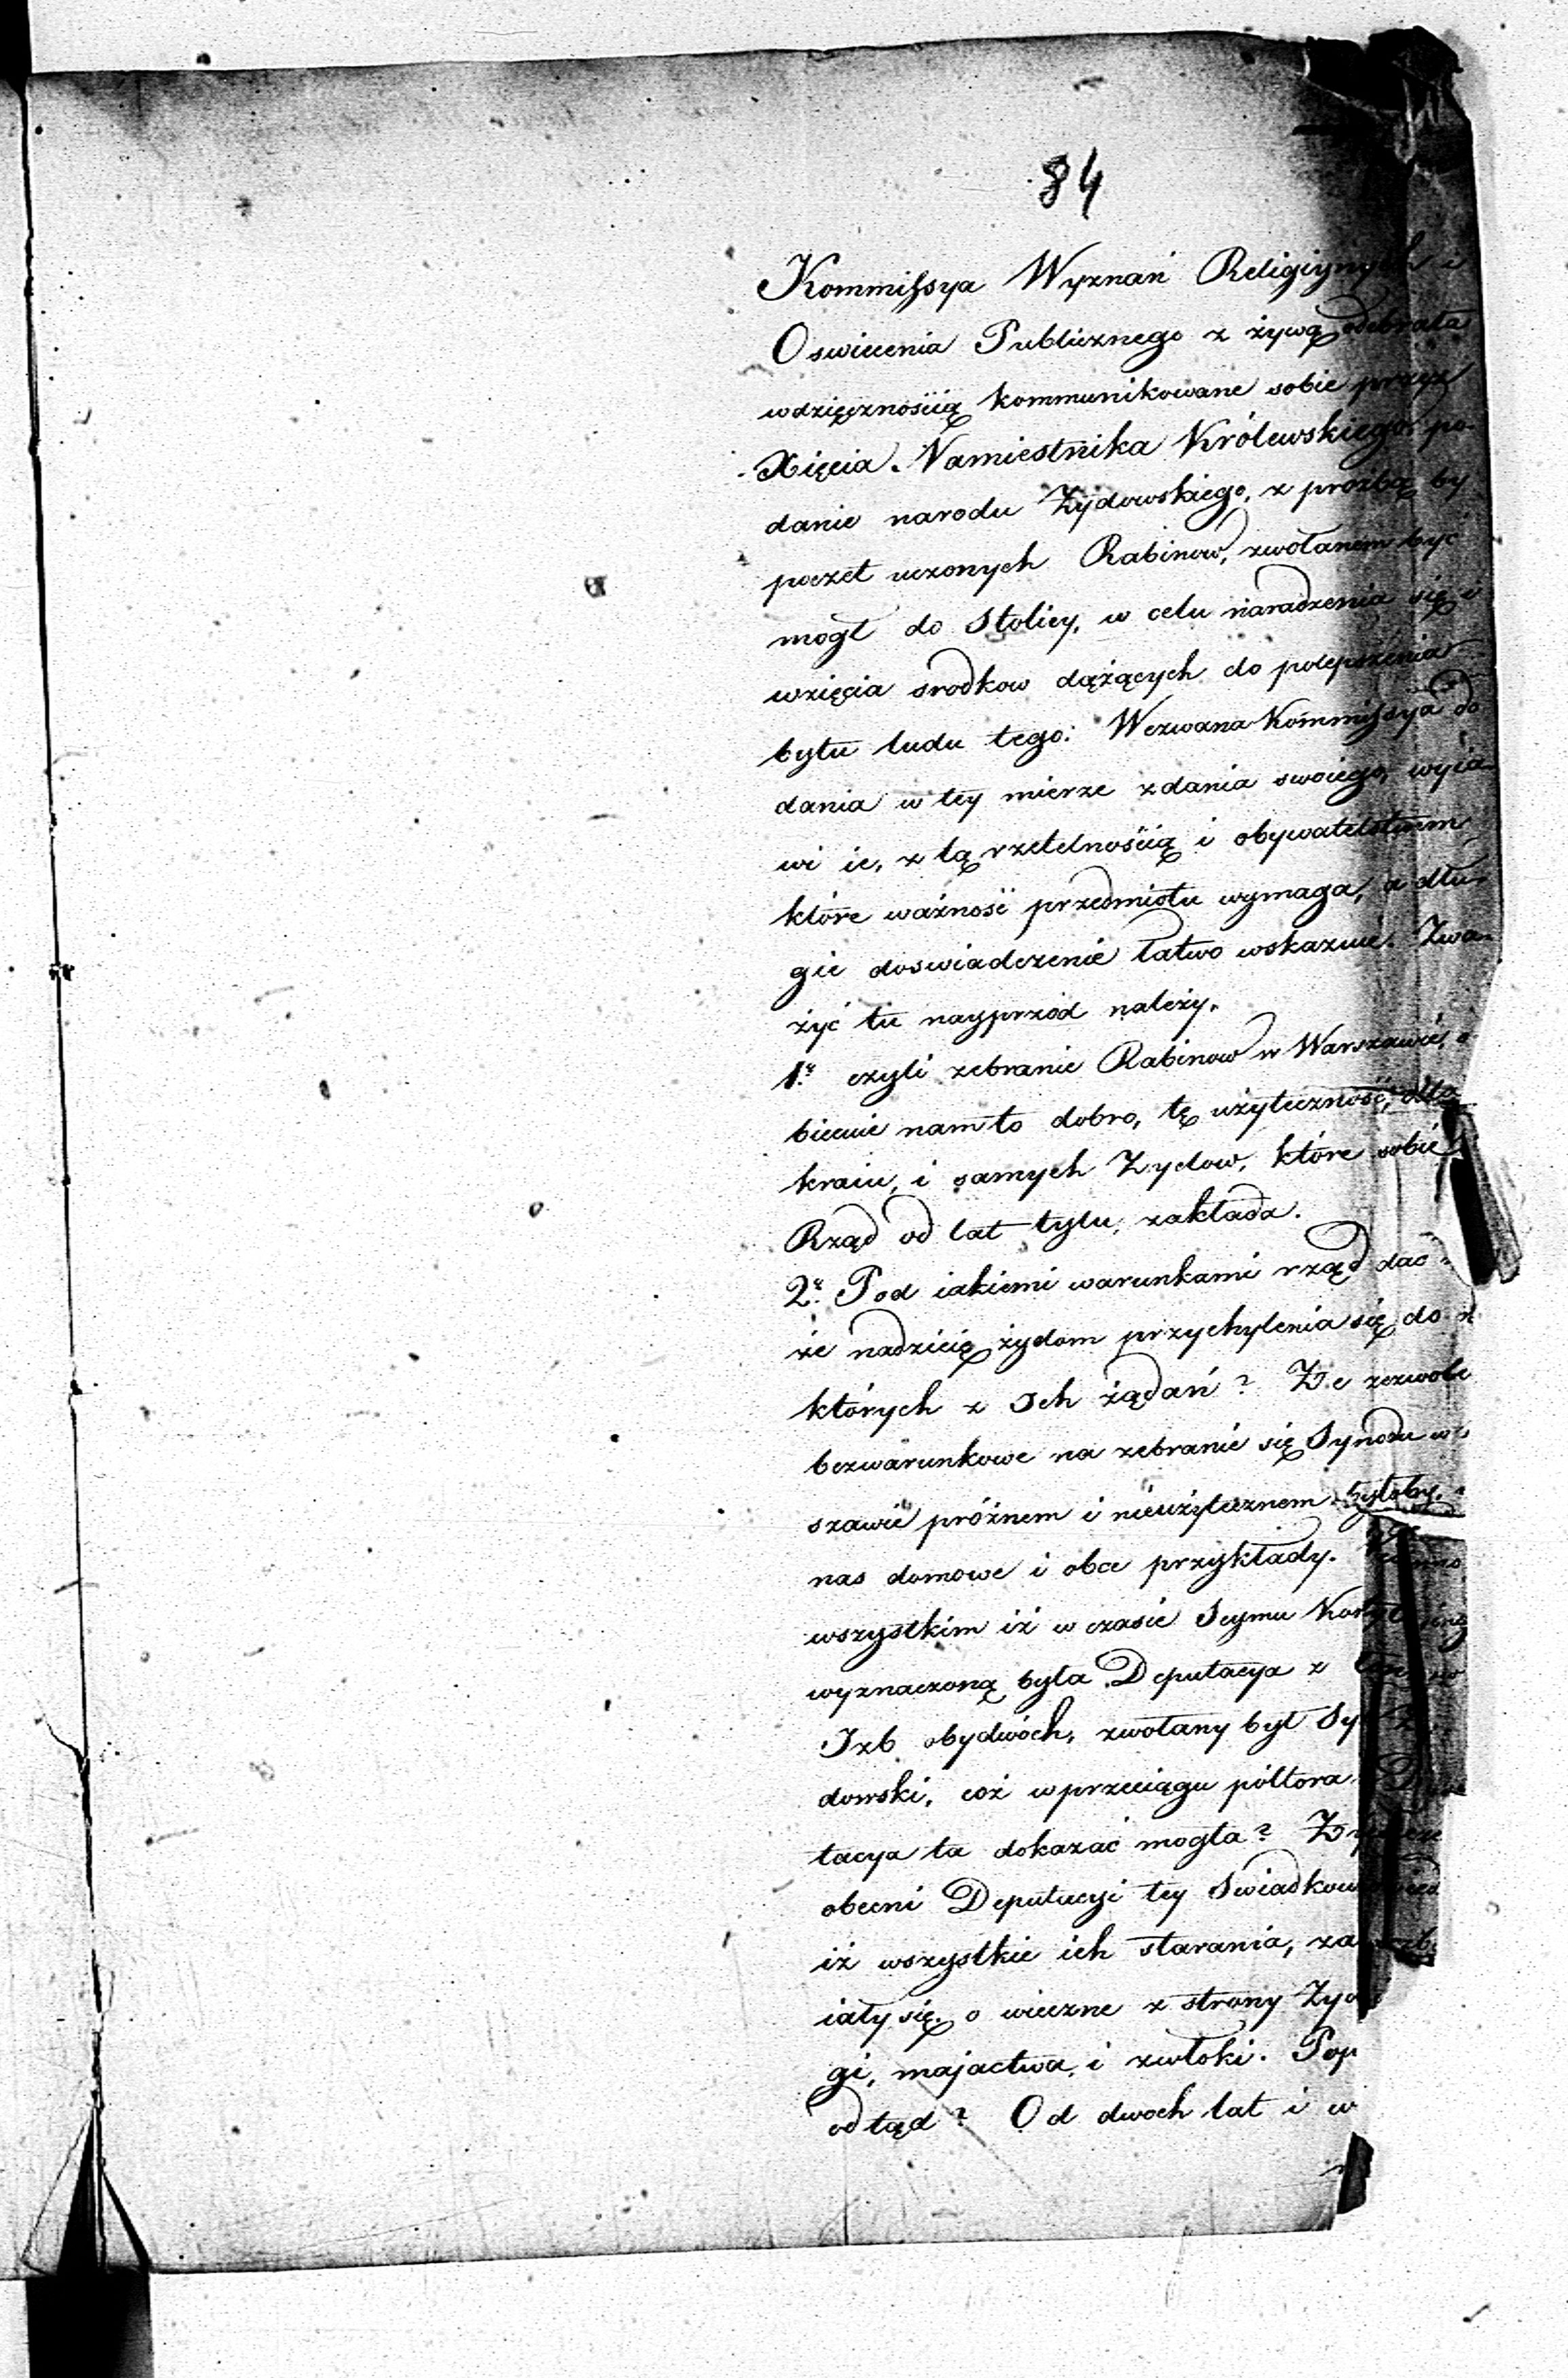 84
Kommissya Wyznań Religiynych i
Oswiecenia Publicznego z żywą odebrała
wdzięcznością kommunikowane sobie przez
Xięcia Namiestnika Królewskiego po-
danie narodu Żydowskiego, z proźbą by
poczet uczonych Rabinow, zwołanem być
mogł do Stolicy, w celu naradzenia się i
wzięcia srodkow dążących do polepszenia
bytu ludu tego: Wezwana Kommissya do
dania w tey mierze zdania swoiego, wyia-
wi ie, z tą rzetelnością i obywatelstwem
które ważność przedmiotu wymaga, a dłu-
gie doswiadczenie łatwo wskazuie. Zwa-
żyć tu nayprzód należy.
1.e czyli zebranie Rabinow w Warszawie, o-
biecuie nam to dobro, tę użyteczność, dla
kraiu, i samych Zydow, które sobie
Rząd od lat tylu, zakłada.
2.e Pod iakiemi warunkami rząd dac
że nadzieię żydom przychylenia się do
których z Ich żądań? Że zezwole
bezwarunkowe na zebranie się Synodu w
szawie próżnem i nieużytecznem byłoby,
nas domowe i obce przykłady.
wszystkim iż w czasie Seymu
wyznaczoną była Deputacya z
Izb obydwóch, zwołany był
dowski, coż w przeciągu półtora
tacya ta dokazać mogła?
obecni Deputacyi tey Swiadkow
iż wszystkie ich starania,
iały się o wieczne z strony
gi, majactwa, i zwłoki.
odtąd? Od dwoch lat i w